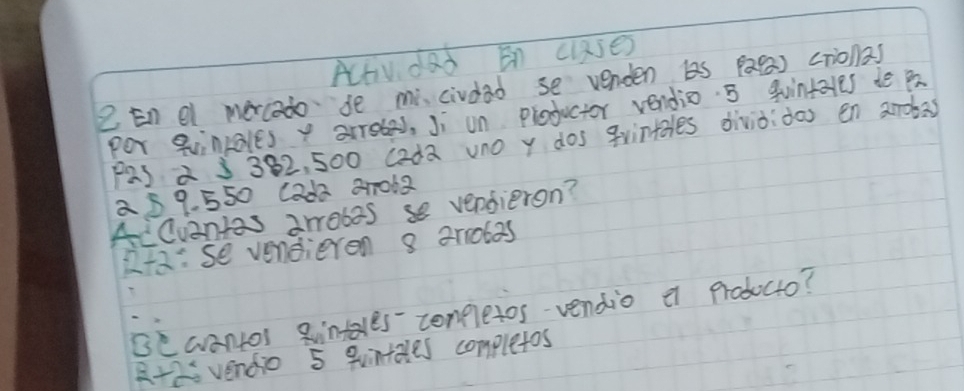 Actividad En clases
2 En el mercado de mi ciudad se venden las papas criollas
por quintales y arrobas, si un productor vendio 5 quintales de pa
pas a $ 382,500 cada uno y dos quintales divididos en arrobas
a $ 9.550 cada arroba
A ¿Cuantas arrobas se vendieron?
R+a: se vendieron 8 arrobas
B ¿cuantos quintales completos vendio el producto?
R+a: vendio 5 quintales completos